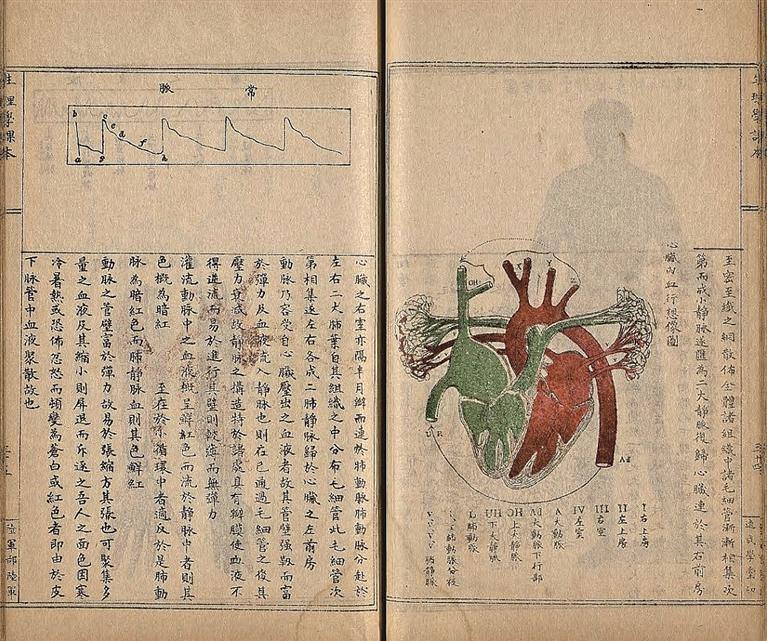 生理學課本
至密至纖之網散佈全體諸組織中諸毛細管漸漸相集次
第而成小靜脈遂匯為二大靜脈復歸心臟連於其右前房
心臟內血行想像圖
I 右上房
II 左上房
III 右室
IV 左室
A 大動脈
Ad 大動脈下行部
OH 上大靜脈
UH 下大靜脈
L 肺動脈
肺動脈分枝
肺靜脈
OH
Ad
常脈
a b c d e f g h
心臟之右室亦隔半月瓣而連於肺動脈肺動脈分赴於
左右二大肺葉自其組織之中分布毛細管此毛細管次
第相集遂左右各成二肺靜脈歸於心臟之左前房
動脈乃容受自心臟壓出之血液者故其管壁強靱而富
於彈力及血液流入靜脈也則在已通過毛細管之後其
壓力故靜脈之構造特於諸處具有瓣膜使血液不
得逆流而易於進行其壁則軟薄而無彈力
灌流動脈中之血液概呈鮮紅色而流於靜脈中者則其
色概為暗紅 至在於小循環中者適反於是肺動
脈為暗紅色而肺靜脈血則其色鮮紅
動脈之管壁富於彈力故易於張縮方其張也可聚集多
量之血液及其縮小則屏退而斥逐之吾人之面色因寒
冷暑熱或恐怖忿怒而頓變為蒼白或紅色者即由於皮
下脈管中血液聚散故也
生理學課本
陸軍部陸軍